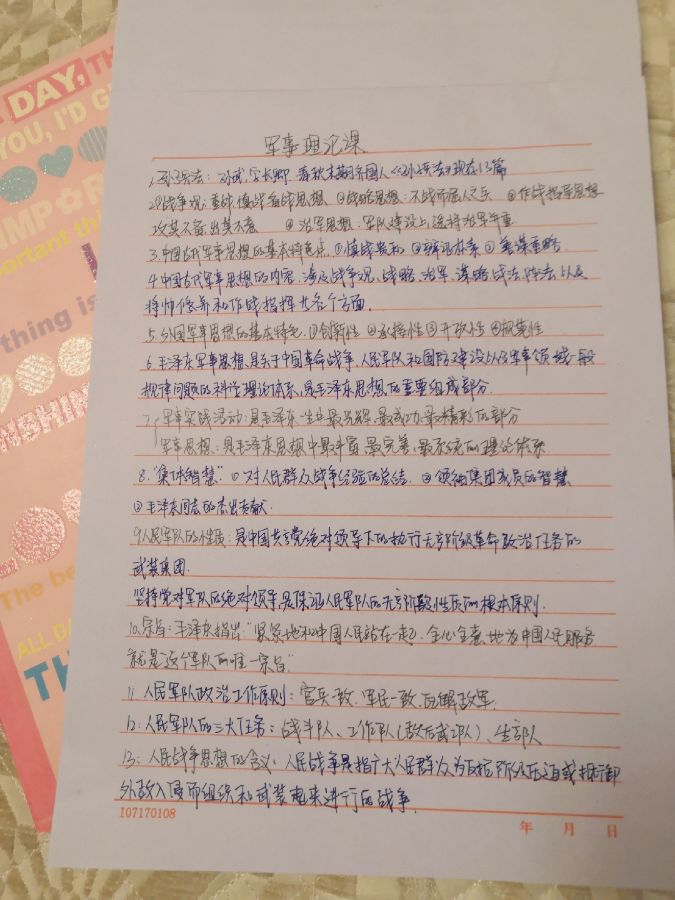 DAY, TH
YOU, I'D G
IMPOR
portant thi
thing is
NSHIN
The be
ALL DA
TH
军事理论课
1.孙子兵法：孙武,字长卿 春秋末期齐国人《孙子兵法》现存13篇
2.①战争观：重战、慎战、备战思想 ②战略思想：不战而屈人之兵 ③作战指导思想
攻其不备、出其不意 ④治军思想：军队建设上,选将治军并重
3.中国古代军事思想的基本特点 ①慎战贵和 ②辩证体系 ③善谋重略
4.中国古代军事思想的内容,涉及战争观、战略、治军、谋略、战法、阵法以及
将帅修养和作战指挥等各个方面.
5.外国军事思想的基本特色 ①创新性 ②承接性 ③开放性 ④规范性
6.毛泽东军事思想,是关于中国革命战争、人民军队和国防建设以及军事领域一般
规律问题的科学理论体系,是毛泽东思想的重要组成部分.
7.军事实践活动：是毛泽东一生最光辉、最成功、最精彩的部分
军事思想：是毛泽东思想中最丰富、最完善、最系统的理论体系
8."集体智慧" ①对人民群众战争经验的总结 ②领袖集团成员的智慧
③毛泽东同志的杰出贡献.
9.人民军队的性质：是中国共产党绝对领导下的执行无产阶级革命政治任务的
武装集团.
坚持党对军队的绝对领导,是保证人民军队的无产阶级性质的根本原则.
10.宗旨：毛泽东指出："紧紧地和中国人民站在一起,全心全意地为中国人民服务
就是这个军队的唯一宗旨"
11.人民军队政治工作原则：官兵一致、军民一致、瓦解敌军.
12.人民军队的三大任务：战斗队、工作队(敌后武工队)、生产队
13.人民战争思想的含义：人民战争是指广大人民群众为反抗阶级压迫或抵御
外敌入侵而组织和武装起来进行的战争.
107170108
年 月 日